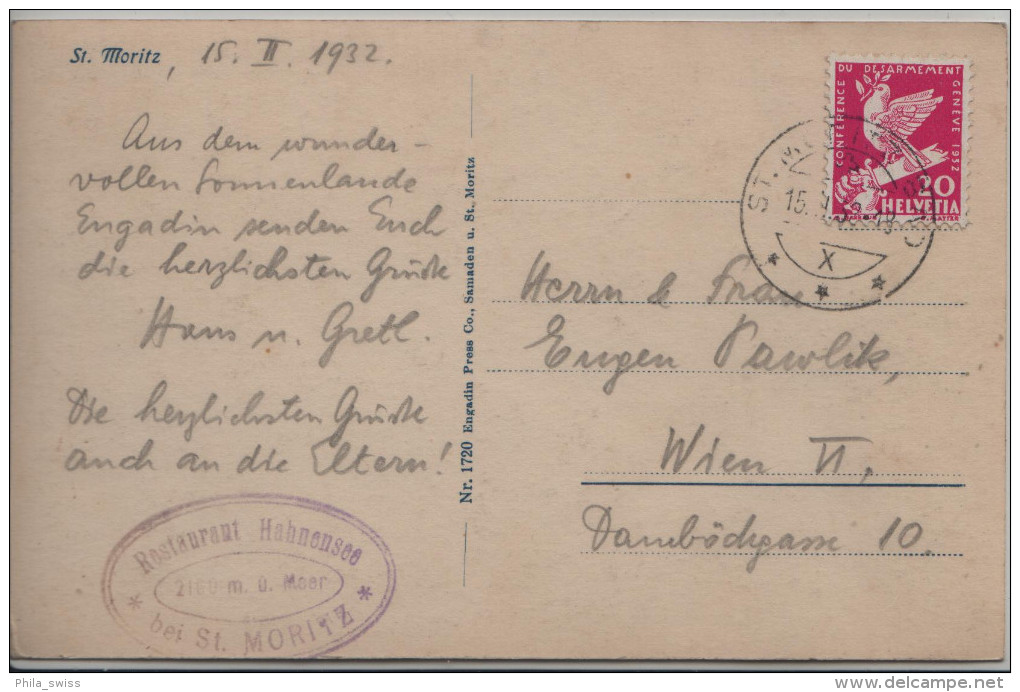 St. Moritz, 15. II. 1932.
Aus dem wunder-
vollen Sonnenlande
Engadin senden Euch
die herzlichsten Grüße
Hans u. Gretl.
Die herzlichsten Grüße
auch an die Eltern!
Restaurant Hahnensee
m. ü. Meer
bei St. MORITZ
Nr. 1720 Engadin Press Co., Samaden u. St. Moritz
CONFÉRENCE DU DÉSARMEMENT GENÈVE 1932
20
HELVETIA
ST. MORITZ
15.
X
Herrn & Frau
Eugen Pawlik,
Wien II,
10.
Phila_swiss
www.delcampe.net